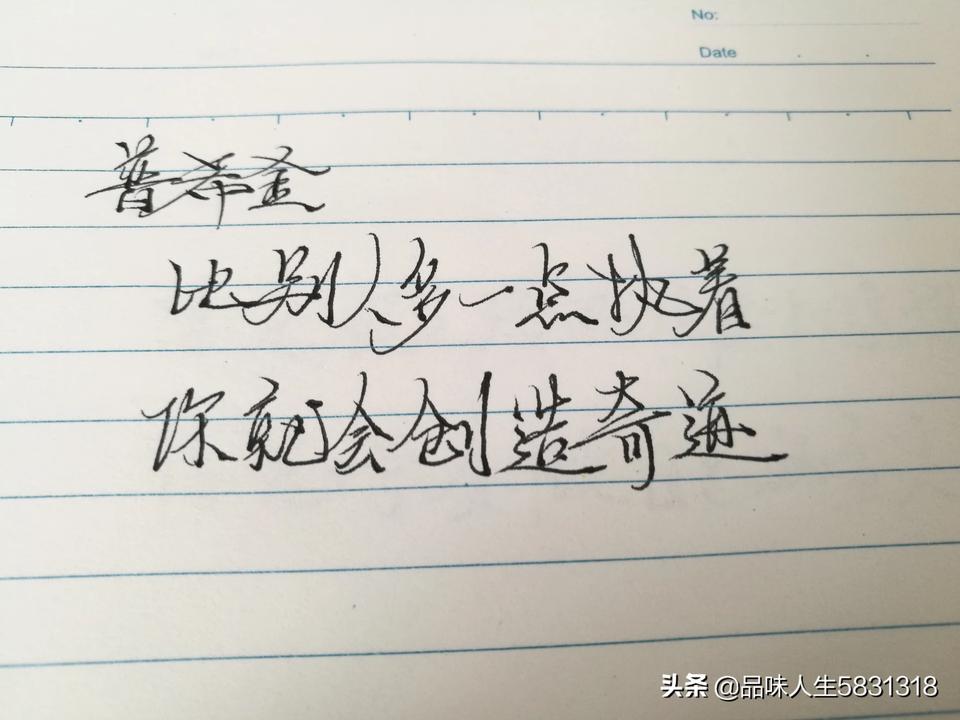 No:
Date
普希金
比别人多一点执着
你就会创造奇迹
头条 @品味人生5831318